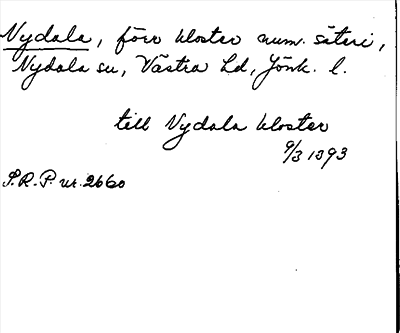 Nydala, förr kloster num. säteri,
Nydala sn, Västra hd, Jönk. l.
till Nydala kloster
9/3 1393
S.R.P. nr. 2660